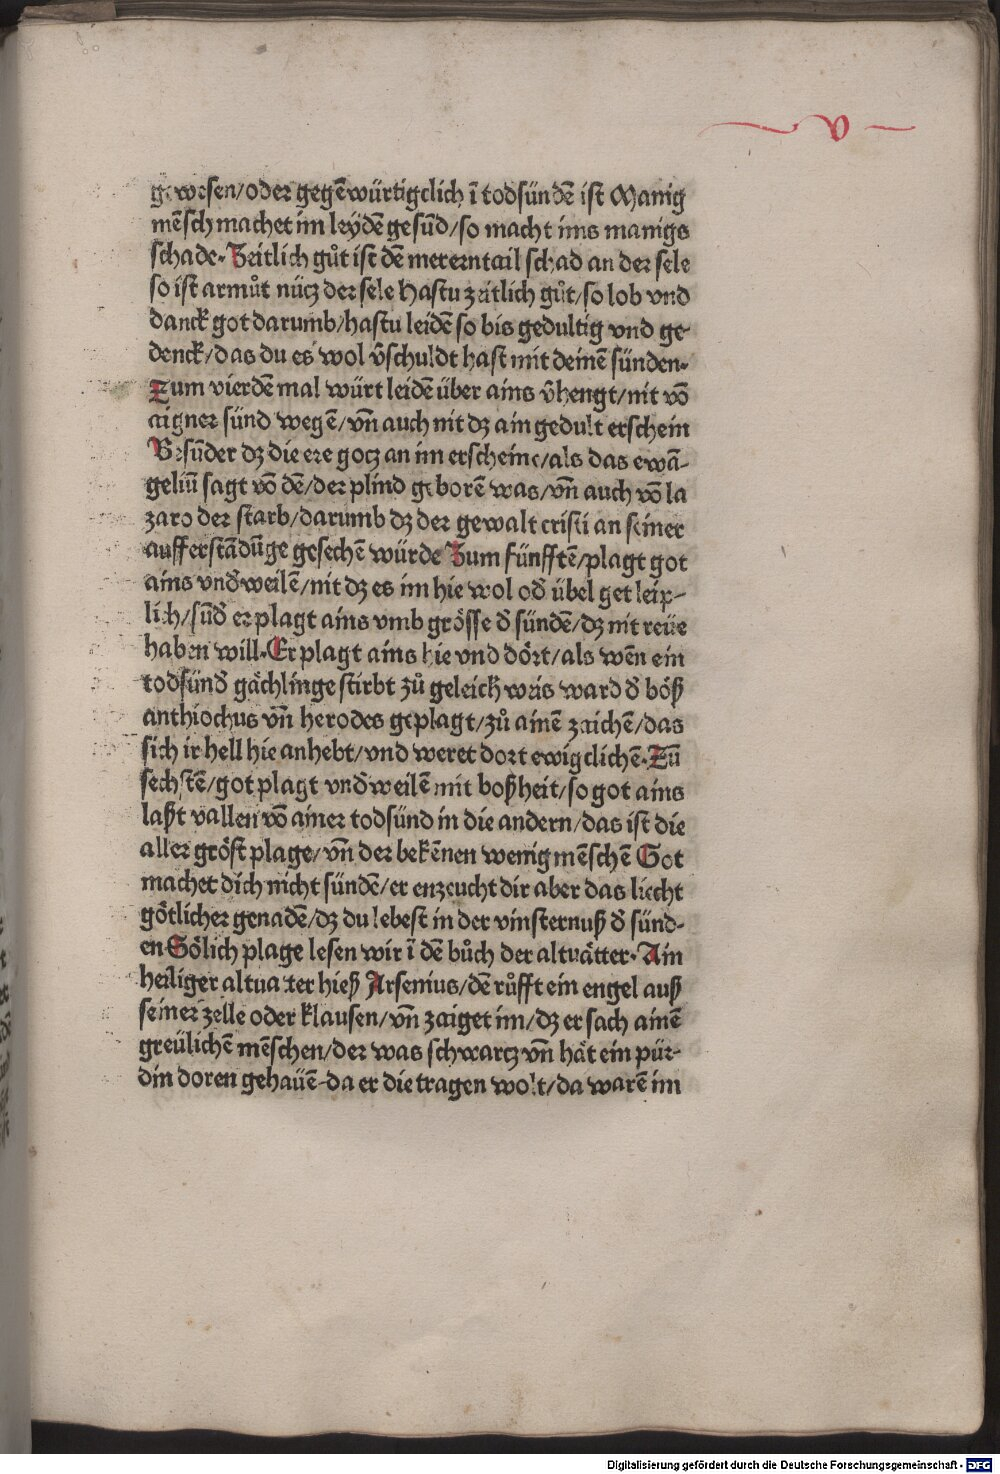 v
gewesen/oder gegēwürtigclich ī todsündē ist Manig
mēsch machet im leydē gesūd/so macht ims manigs
schade. Zeitlich gůt ist dē merern tail schad an der sele
so ist armůt nücz der sele Hastu zeitlich gůt/so lob vnd
danck got darumb/hastu leidē so bis gedultig vnd ge-
denck/das du es wol v̄schuldt hast mit deinē sünden.
Zum vierdē mal würt leidē über ains v̄hengt/nit vō
aigner sünd wegē/vn̄ auch nit dz ain gedult erschein
Besūder dz die ere gocz an im erscheine/als das ewā-
geliū sagt vō dē/der plind geborē was/vn̄ auch vō la
zaro der starb/darumb dz der gewalt cristi an seiner
aufferstādūge gesechē würde Zum fünfftē/plagt got
ains vnd̄weilē/nit dz es im hie wol od̄ übel get leip-
lich/sūd̄ er plagt ains vmb grösse d̄ sündē/dz nit reüe
haben will. Er plagt ains hie vnd dört/als wēn ein
todsünd̄ gächlinge stirbt zů geleich wäs ward d̄ böß
anthiochus vn̄ herodes geplagt/zů ainē zaichē/das
sich ir hell hie anhebt/vnd weret dort ewigclichē. Zū
sechstē/got plagt vnd̄weilē mit boßheit/so got ains
laßt vallen vō ainer todsünd in die andern/das ist die
aller gröst plage/vn̄ der bekēnen wenig mēschē Got
machet dich nicht sündē/er enzeucht dir aber das liecht
götlicher genadē/dz du lebest in der vinsternuß d̄ sünd-
en Sölich plage lesen wir ī dē bůch der altuätter. Ain
heiliger altuater hieß Arsenius/dē růfft ein engel auß
seiner zelle oder klausen/vn̄ zaiget im/dz er sach ainē
greülichē mēschen/der was schwarcz vn̄ hät ein pür-
din doren gehauē-da er die tragen wolt/da warē im
Digitalisierung gefördert durch die Deutsche Forschungsgemeinschaft - DFG